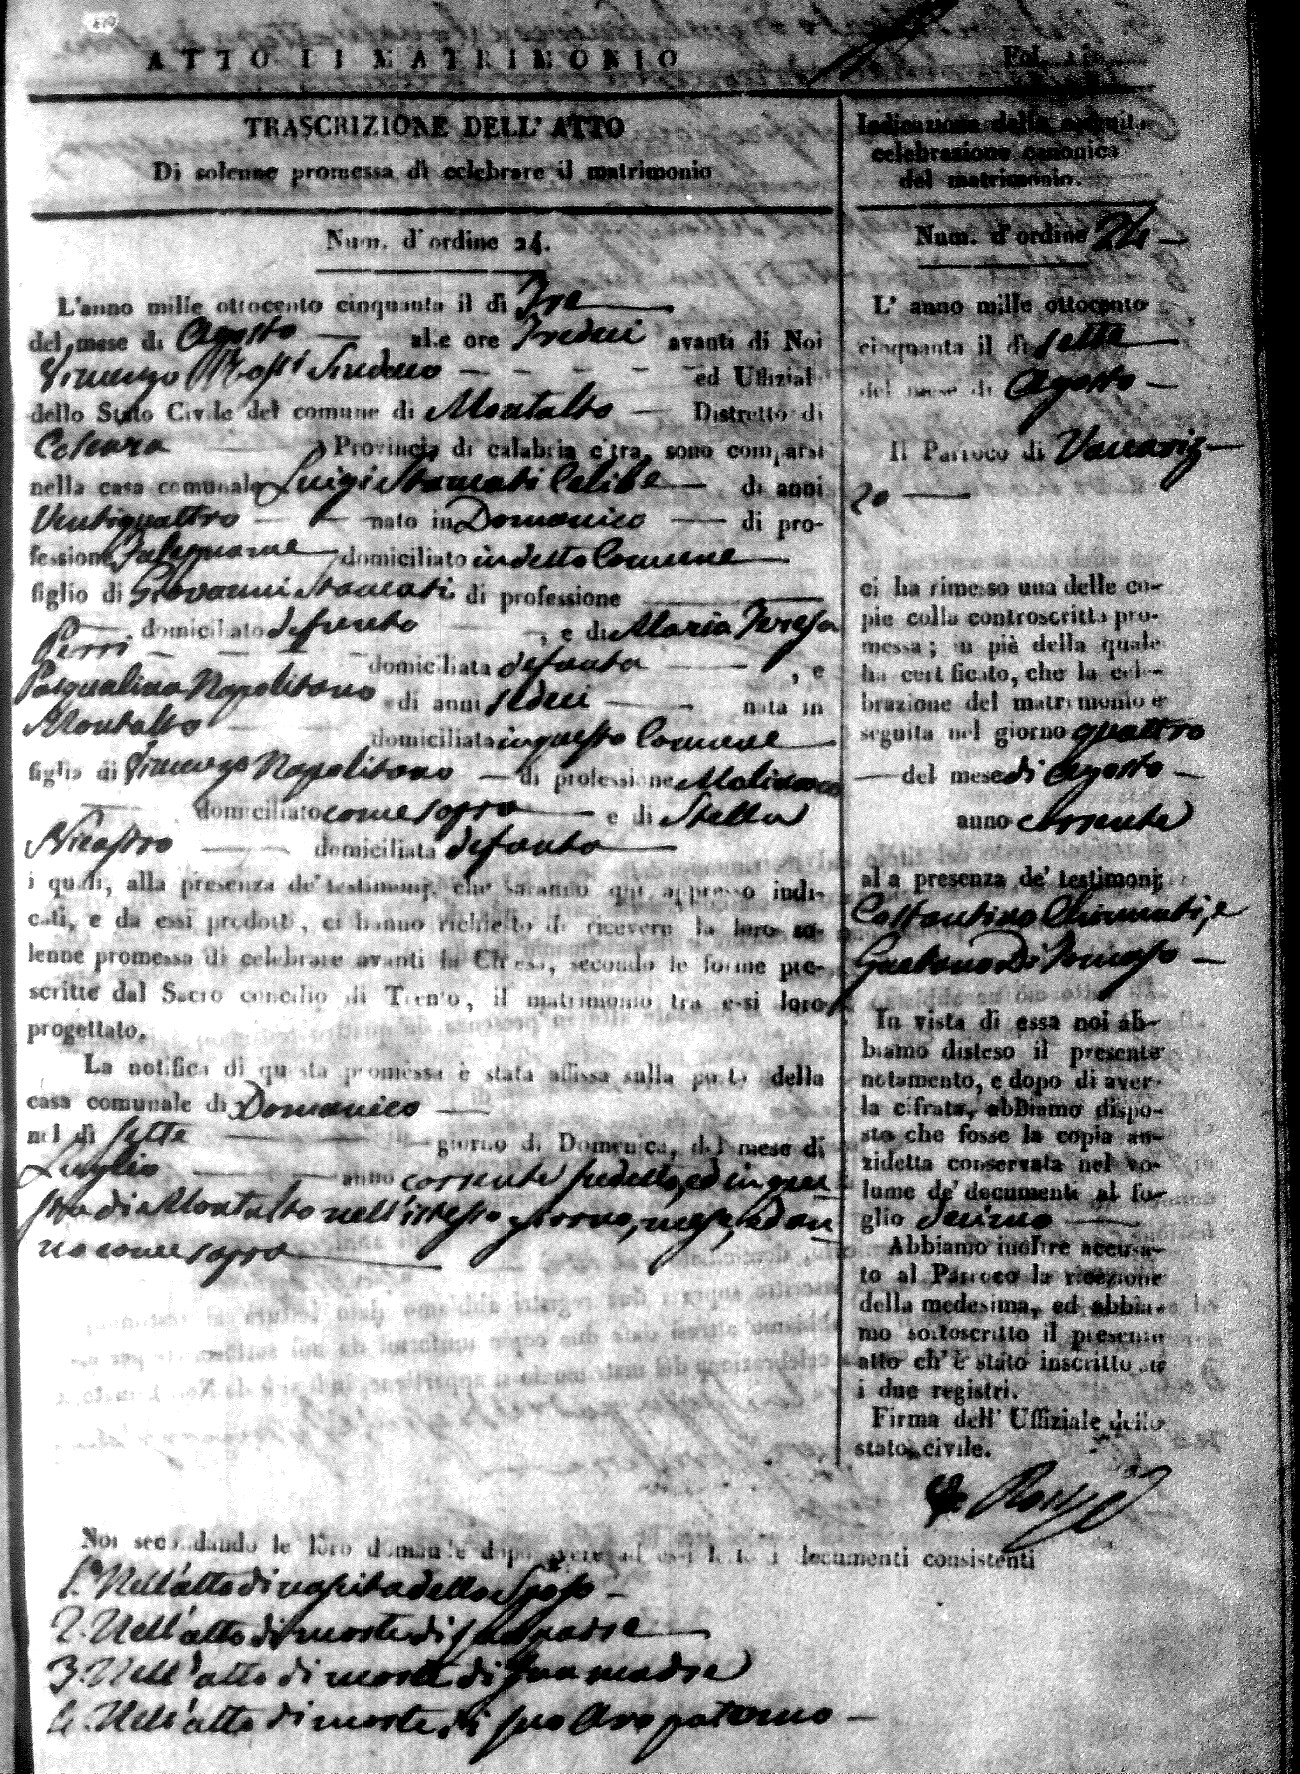 ATTO DI MATRIMONIO
Fol.
TRASCRIZIONE DELL' ATTO
Di solenne promessa di celebrare il matrimonio
Num. d'ordine 24.
L'anno mille ottocento cinquanta il dì Tre
del mese di Agosto alle ore Tredeci avanti di Noi
Vincenzo Rossi Sindaco ed Uffizial
dello Stato Civile del comune di Montalto Distretto di
Cosenza Provincia di calabria citra sono comparsi
nella casa comunale Luigi Stamati Celibe di anni
Ventiquattro nato in Domanico di pro-
fessione Falegname domiciliato in detto Comune
figlio di Giovanni Stamati di professione
domiciliato defunto , e di Maria Teresa
Perri domiciliata defunta , e
Pasqualina Napolitano di anni sedeci nata in
Montalto domiciliata in questo Comune
figlia di Vincenzo Napolitano di professione
domiciliato come sopra e di Stella
Nicastro domiciliata defunta
i quali, alla presenza de' testimonj, che saranno qui appresso indi-
cati, e da essi prodotti, ci hanno richiesto di ricevere la loro so-
lenne promessa di celebrare avanti la Chiesa, secondo le forme pre-
scritte dal Sacro concilio di Trento, il matrimonio tra essi loro
progettato.
La notifica di questa promessa è stata affissa sulla porta della
casa comunale di Domanico
nel dì sette giorno di Domenica, del mese di
Luglio anno corrente sudetto, ed in que
sta di Montalto nell'istesso giorno, mese, ed an
no come sopra
Noi secondando le loro domande dopo avere ad essi letto i documenti consistenti
1.° Nell'atto di nascita dello Sposo
2. Nell'atto di morte di suo padre
3. Nell'atto di morte di sua madre
4. Nell'atto di morte di suo Avo paterno
Indicazione della seguita
celebrazione canonica
del matrimonio.
Num. d'ordine 24
L' anno mille ottocento
cinquanta il dì sette
del mese di Agosto
Il Parroco di Vaccariz
zo
ci ha rimesso una delle co-
pie colla controscritta pro-
messa; in piè della quale
ha certificato, che la cele-
brazione del matrimonio è
seguita nel giorno quattro
del mese di Agosto
anno corrente
alla presenza de' testimonj
Costantino Chimenti, e
Gaetano Di Tomaso
In vista di essa noi ab-
biamo disteso il presente
notamento, e dopo di aver-
la cifrata, abbiamo dispo-
sto che fosse la copia an-
zidetta conservata nel vo-
lume de' documenti al fo-
glio
Abbiamo inoltre accusa-
to al Parroco la ricezione
della medesima, ed abbia-
mo sottoscritto il presente
atto ch' è stato inscritto su
i due registri.
Firma dell' Uffiziale dello
stato civile.
Rossi